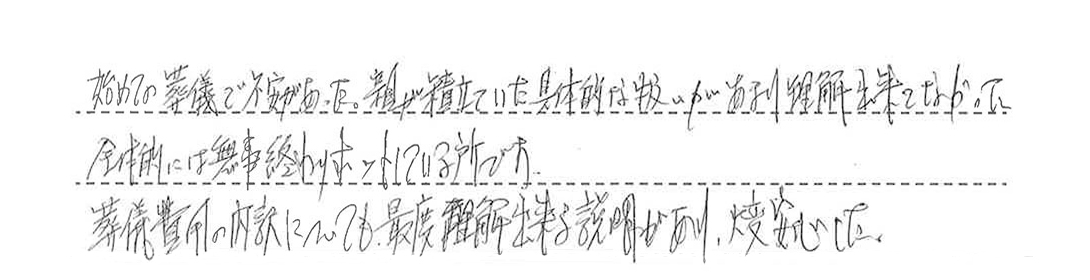 始めての葬儀で不安があった。親が積立ていた具体的な扱いがあまり理解出来てなかった
全体的には無事終わりホッとしている所です.
葬儀費用の内訳についても、最度理解出来る説明があり、安心した。